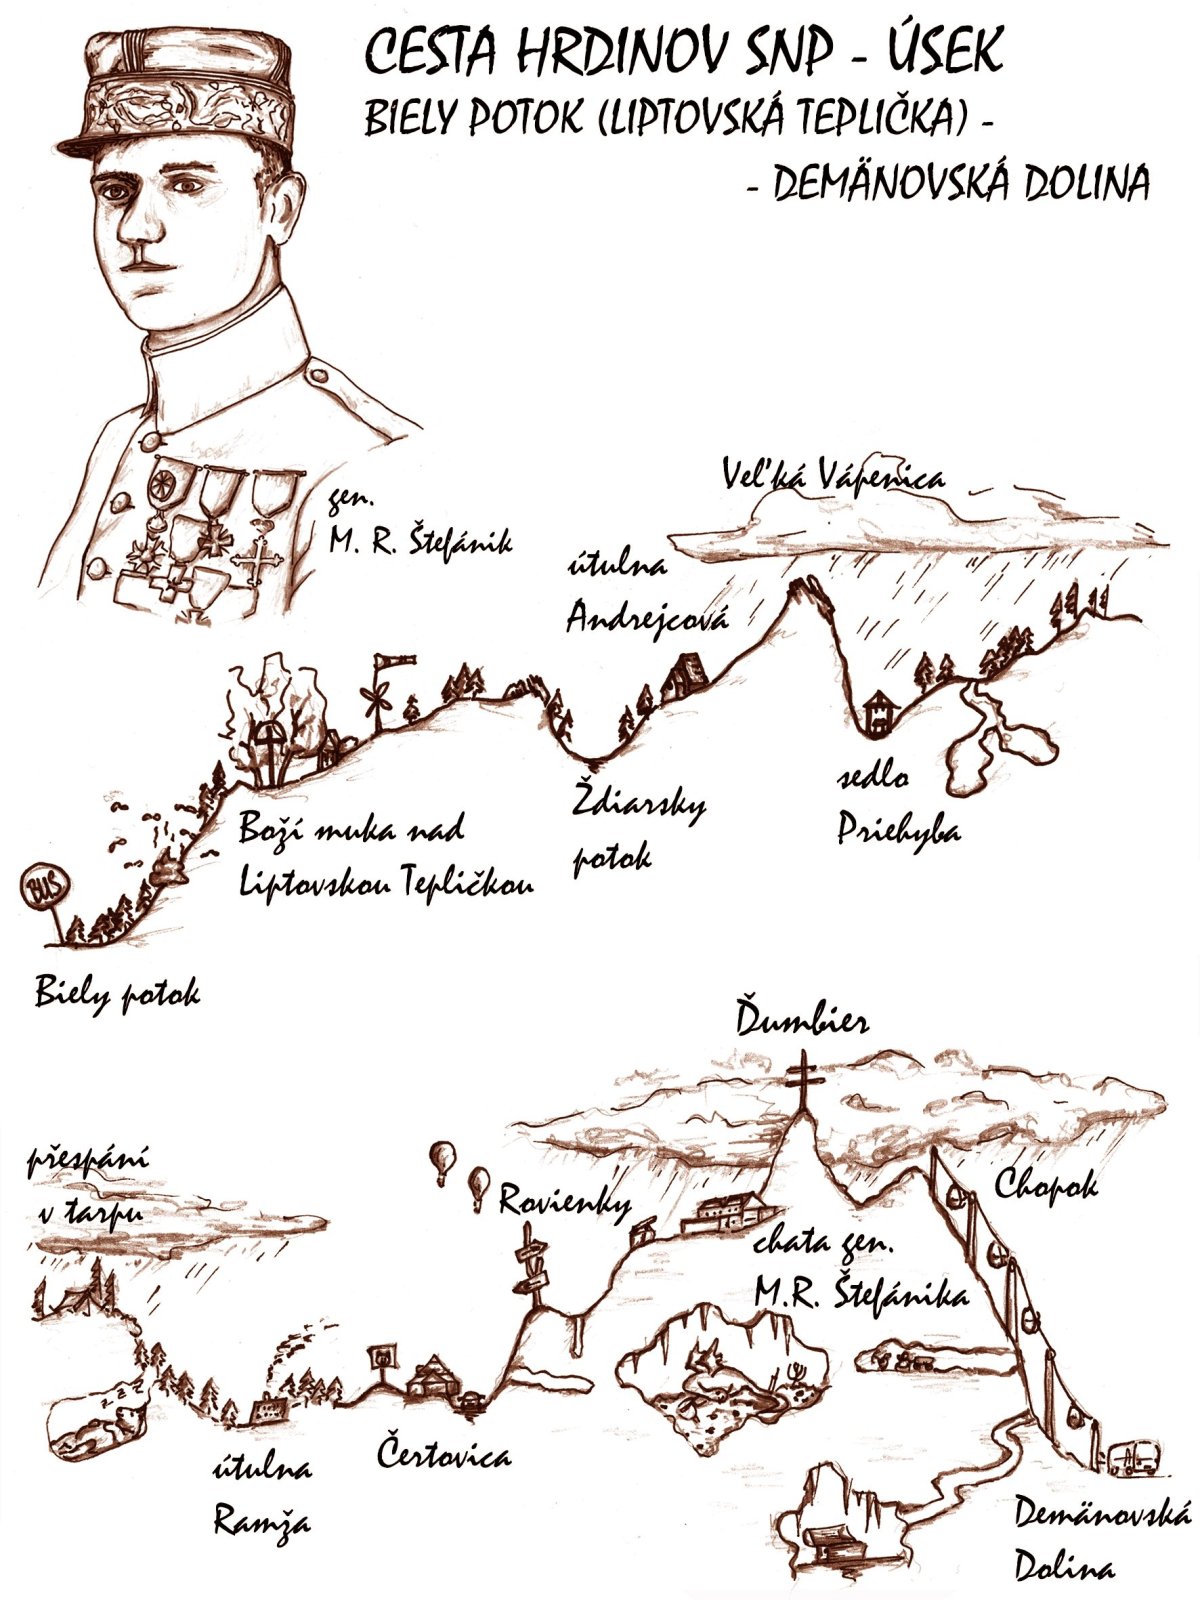 CESTA HRDINOV SNP - ÚSEK
BIELY POTOK (LIPTOVSKÁ TEPLIČKA) -
- DEMÄNOVSKÁ DOLINA
gen.
M. R. Štefánik
Veľká Vápenica
útulna
Andrejcová
Ždiarsky
potok
sedlo
Priehyba
Boží muka nad
Liptovskou Tepličkou
BUS
Biely potok
Ďumbier
přespání
v tarpu
Rovienky
Chopok
chata gen.
M.R. Štefánika
útulna
Ramža
Čertovica
Demänovská
Dolina